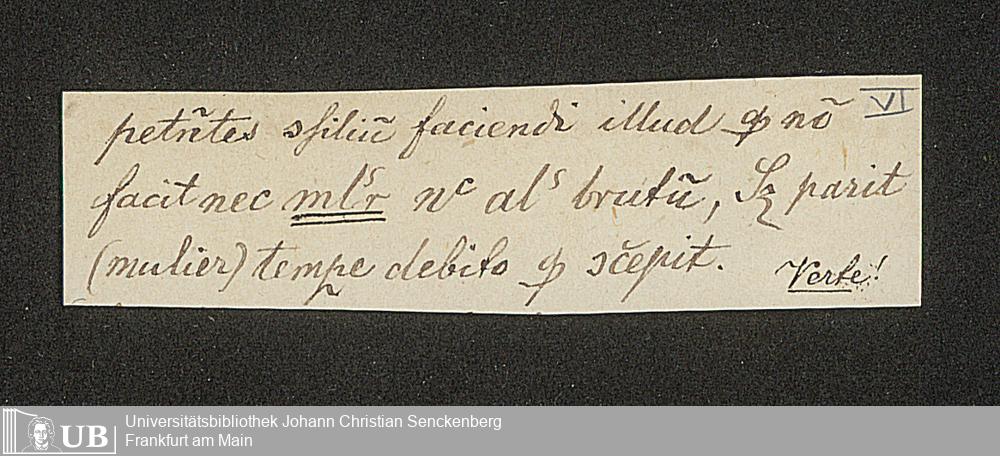 petñtes ꝯsiliũ faciendi illud ꝙ nõ VI
facit nec mlˢr nᶜ alˢ brutũ, Sꝫ parit
(mulier) tempe debito ꝙ ꝯcẽpit. Verte!
UB Universitätsbibliothek Johann Christian Senckenberg
Frankfurt am Main